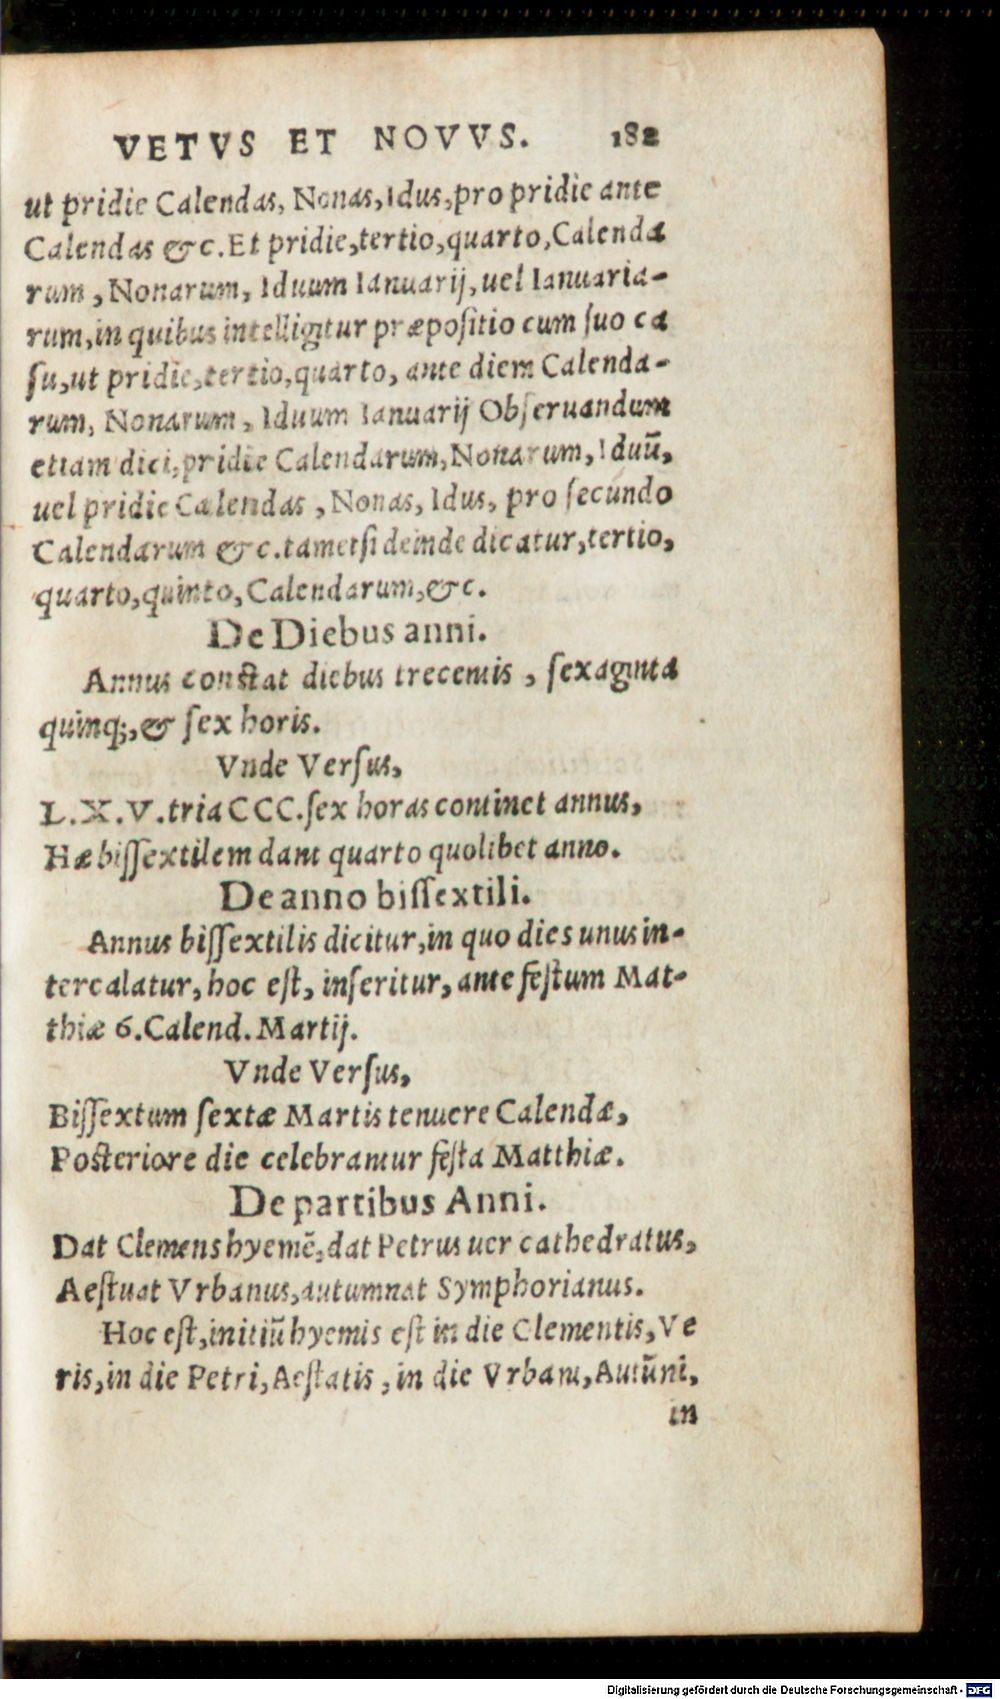 VETVS ET NOVVS. 182
ut pridie Calendas, Nonas, Idus, pro pridie ante
Calendas &c. Et pridie, tertio, quarto, Calenda
rum, Nonarum, Iduum Ianuarij, uel Ianuaria-
rum, in quibus intelligitur præpoſitio cum ſuo ca
ſu, ut pridie, tertio, quarto, ante diem Calenda-
rum, Nonarum, Iduum Ianuarij Obſeruandum
etiam dici, pridie Calendarum, Nonarum, Iduū,
uel pridie Calendas, Nonas, Idus, pro ſecundo
Calendarum &c. tametſi deinde dicatur, tertio,
quarto, quinto, Calendarum, &c.
De Diebus anni.
Annus conſtat diebus trecentis, ſexaginta
quinq;, & ſex horis.
Vnde Verſus,
L.X.V. tria CCC. ſex horas continet annus,
Hæ biſſextilem dant quarto quolibet anno.
De anno biſſextili.
Annus biſſextilis dicitur, in quo dies unus in-
tercalatur, hoc eſt, inſeritur, ante feſtum Mat-
thiæ 6. Calend. Martij.
Vnde Verſus,
Biſſextum ſextæ Martis tenuere Calendæ,
Poſteriore die celebrantur feſta Matthiæ.
De partibus Anni.
Dat Clemens hyemē, dat Petrus uer cathedratus,
Aeſtuat Vrbanus, autumnat Symphorianus.
Hoc eſt, initiū hyemis eſt in die Clementis, Ve
ris, in die Petri, Aeſtatis, in die Vrbani, Autūni,
in
Digitalisierung gefördert durch die Deutsche Forschungsgemeinschaft - DFG